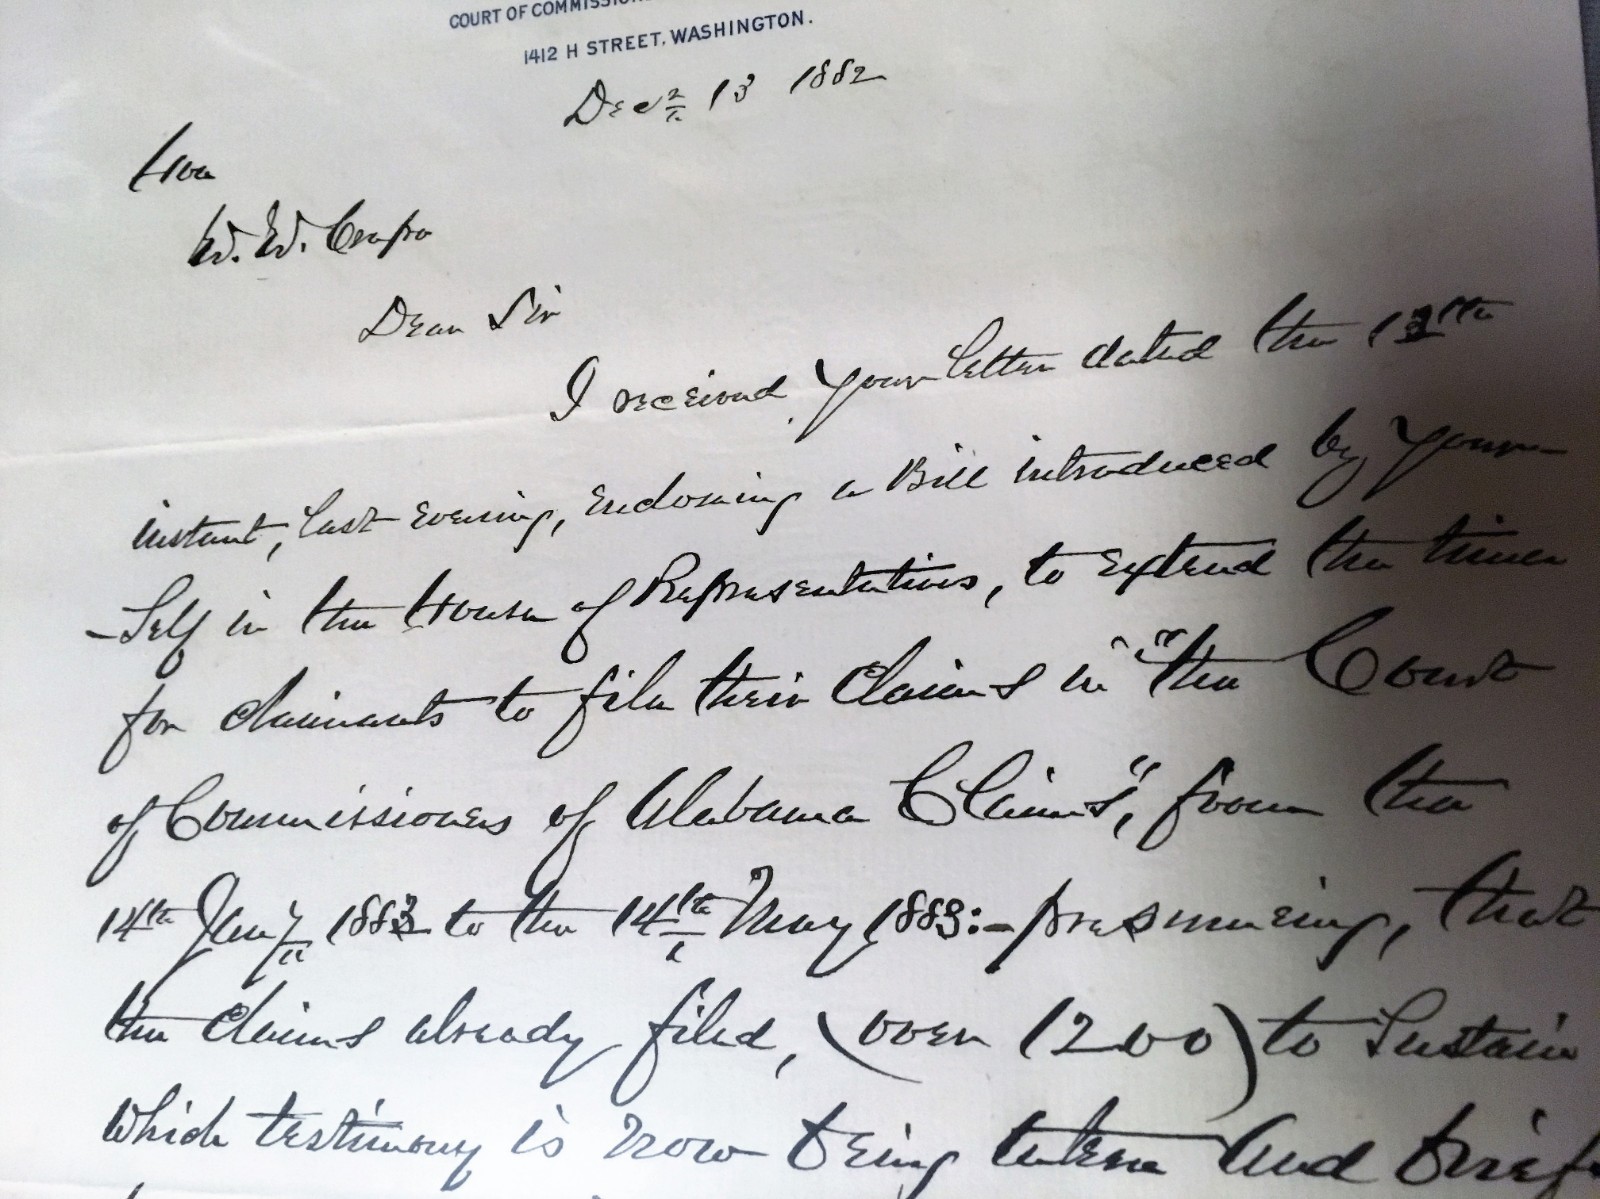 COURT OF COMMISSIONE
1412 H STREET, WASHINGTON.
Decr 13 1882
Hon
W. W. Crapo
Dear Sir
I received your letter dated the 12th
instant, last evening, enclosing a Bill introduced by your-
-self in the House of Representatives, to extend the time
for claimants to file their Claims in "the Court
of Commissioners of Alabama Claims", from the
14th Jany 1883 to the 14th May 1883:- presuming, that
the Claims already filed, (over 1200) to sustain
which testimony is now being taken and brief